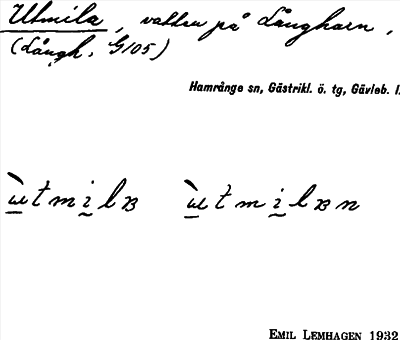 Utmila, vatten på Långharn,
(Långh. G105)
Hamrånge sn, Gästrikl. ö. tg, Gävleb. l.
ùtmilʙ ùtmilʙn
EMIL LEMHAGEN 1932